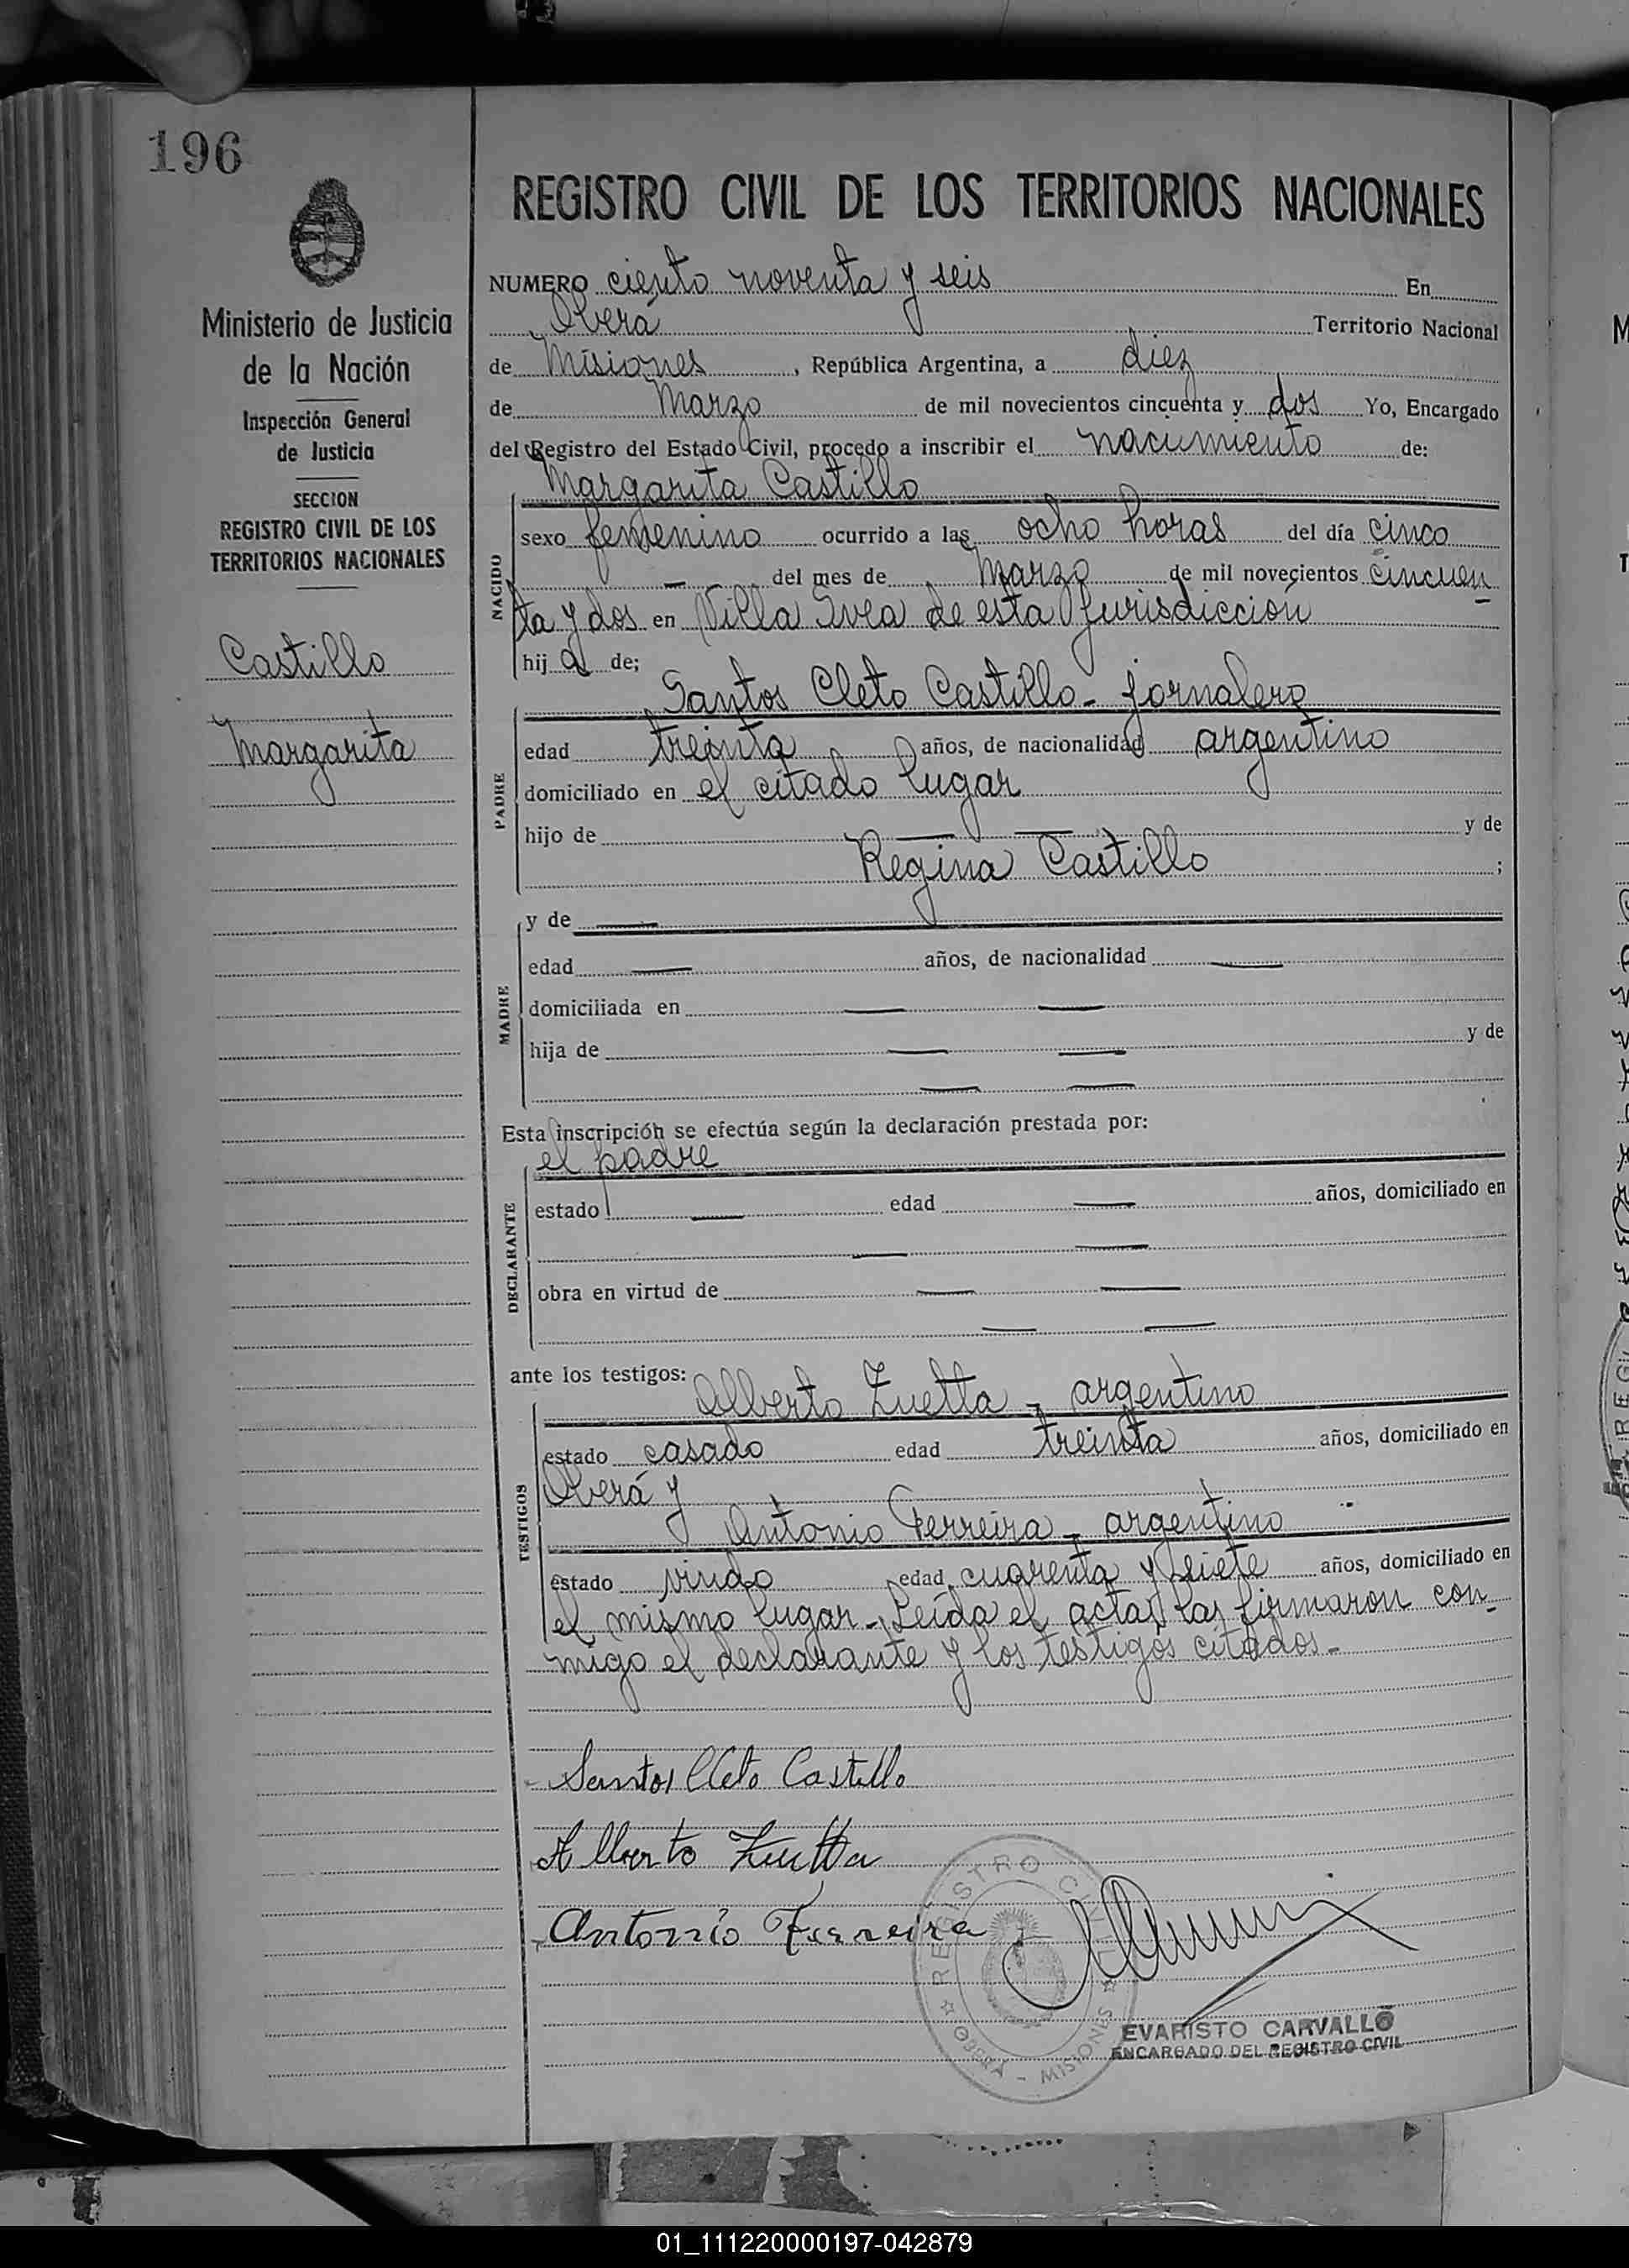 196
Ministerio de Justicia
de la Nación
Inspección General
de Justicia
SECCION
REGISTRO CIVIL DE LOS
TERRITORIOS NACIONALES
Castillo
Margarita
REGISTRO CIVIL DE LOS TERRITORIOS NACIONALES
NUMERO ciento noventa y seis En
Oberá Territorio Nacional
de Misiones, República Argentina, a diez
de Marzo de mil novecientos cincuenta y dos Yo, Encargado
del Registro del Estado Civil, procedo a inscribir el nacimiento de:
Margarita Castillo
NACIDO
sexo femenino ocurrido a las ocho horas del día cinco
— del mes de Marzo de mil novecientos cincuen-
ta y dos en Villa Svea de esta Jurisdicción
hij a de;
Santos Cleto Castillo - jornalero
PADRE
edad treinta años, de nacionalidad argentino
domiciliado en el citado lugar
hijo de — — y de
Regina Castillo ;
y de —
MADRE
edad — años, de nacionalidad —
domiciliada en — —
hija de — — y de
— —
Esta inscripción se efectúa según la declaración prestada por:
el padre
DECLARANTE
estado — edad — años, domiciliado en
— —
obra en virtud de — —
— —
ante los testigos:
Alberto Zuetta - argentino
TESTIGOS
estado casado edad treinta años, domiciliado en
Oberá y
Antonio Ferreira - argentino
estado viudo edad cuarenta y siete años, domiciliado en
el mismo lugar - Leída el acta, la firmaron con-
migo el declarante y los testigos citados.-
Santos Cleto Castillo
Alberto Zuetta
Antonio Ferreira
REGISTRO CIVIL
OBERÁ - MISIONES
EVARISTO CARVALLO
ENCARGADO DEL REGISTRO CIVIL
01_111220000197-042879